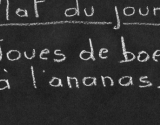 Plat du jour
Joues de boe
à l'ananas